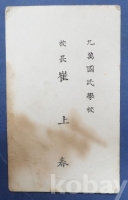 九萬國民學校
校長 崔上奉
kobay